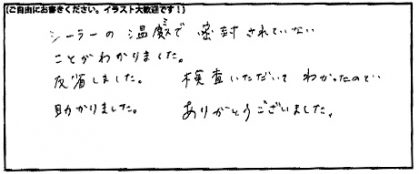 (ご自由にお書きください。イラスト大歓迎です！)
シーラーの温度で密封されていない
ことがわかりました。
反省しました。 検査いただいて わかったので
助かりました。 ありがとうございました。